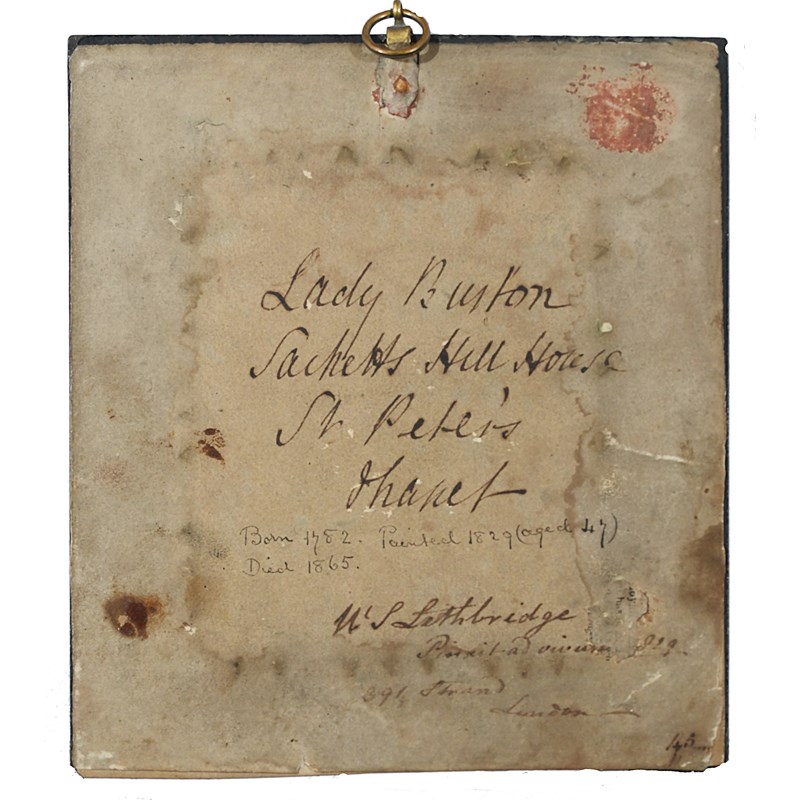 Lady Burton
Sacketts Hill House
St Peter's
Thanet
Born 1782. Painted 1829 (aged 47).
Died 1865.
W. S. Lethbridge
Pinxit ad vivum 1829.
391 Strand
London